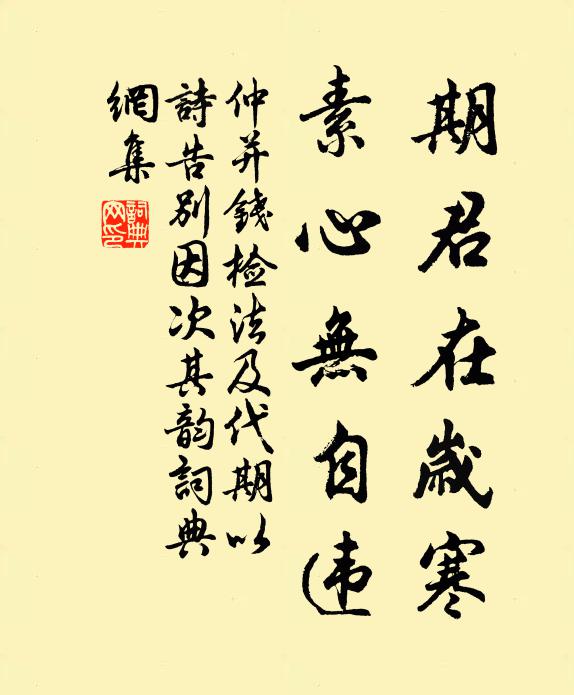 期君在歲寒
素心無自违
仲并錢检法及代期以
詩告别因次其韵詞典
網集
詞典
网印